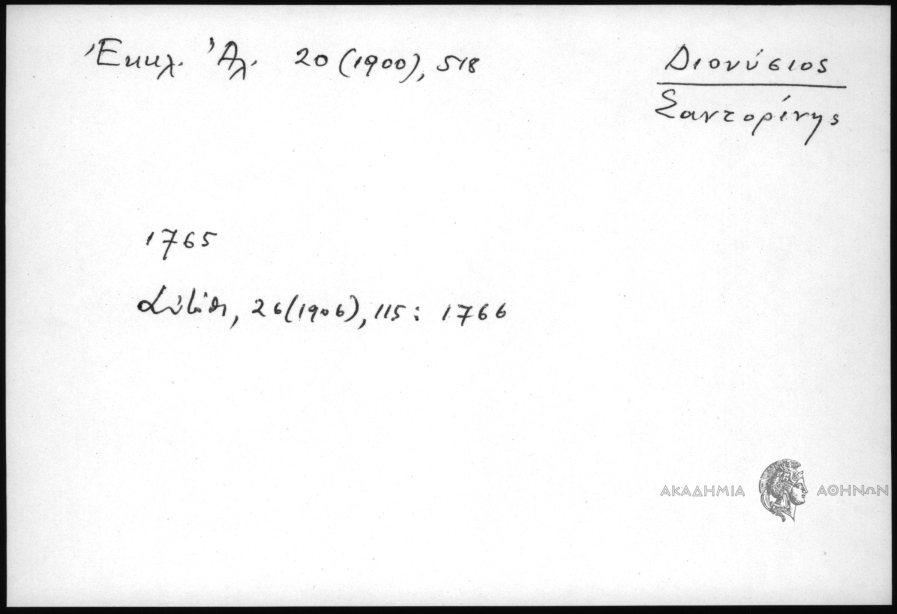 Ἐκκλ. Ἀλ. 20 (1900), 518
Διονύσιος
Σαντορίνης
1765
αὐτόθι, 26 (1906), 115: 1766
ΑΚΑΔΗΜΙΑ ΑΘΗΝΩΝ